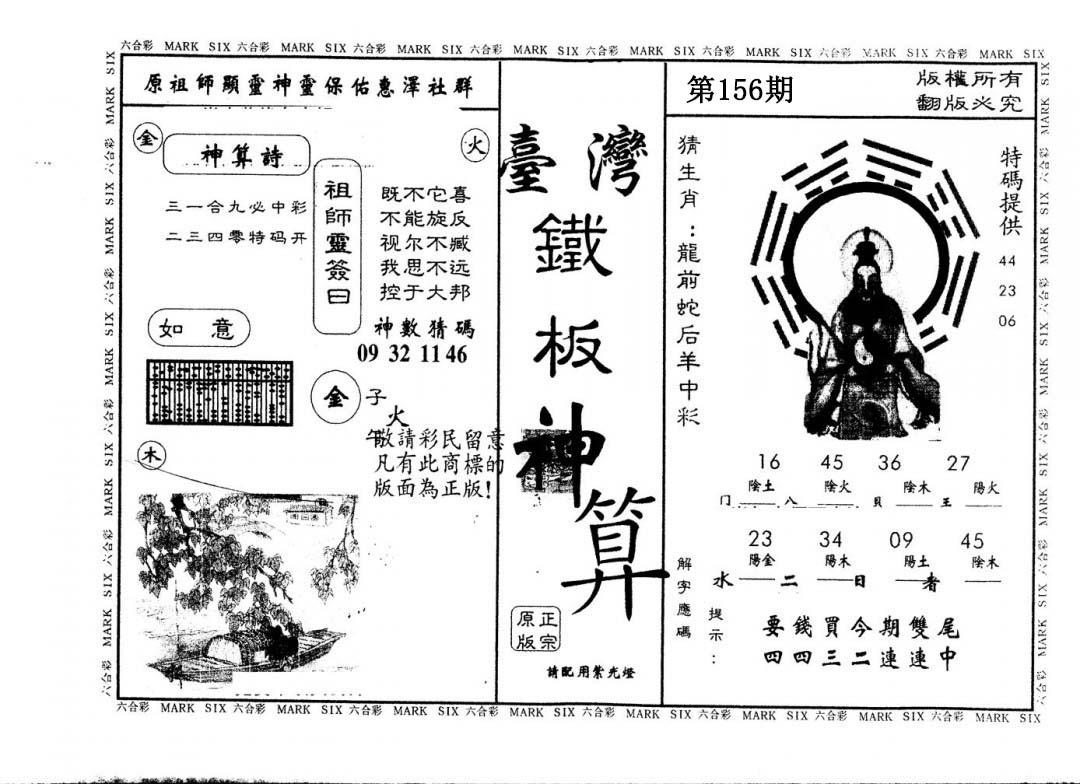 六合彩 MARK SIX 六合彩 MARK SIX 六合彩 MARK SIX 六合彩 MARK SIX 六合彩 MARK SIX 六合彩 MARK SIX 六合彩 MARK SIX 六合彩 MARK SIX
原祖師顯靈神靈保佑惠澤社群
金
神算詩
火
三一合九必中彩
二三四零特码开
祖師靈簽曰
既不它喜
不能旋反
视尔不臧
我思不远
控于大邦
神數猜碼
09 32 11 46
如意
金
子
火
午
敬請彩民留意
凡有此商標的
版面為正版!
木
臺灣
鐵
板
神
算
正宗
原版
請配用紫光燈
第156期
版權所有
翻版必究
猜生肖:龍前蛇后羊中彩
特碼提供
44
23
06
16 45 36 27
陰土 陰火 陰木 陽火
门 八 貝 王
23 34 09 45
陽金 陽木 陽土 陰木
水 二 日 者
解字應碼
提示:
要錢買今期雙尾
四四三二連連中
六合彩 MARK SIX 六合彩 MARK SIX 六合彩 MARK SIX 六合彩 MARK SIX 六合彩 MARK SIX 六合彩 MARK SIX 六合彩 MARK SIX 六合彩 MARK SIX